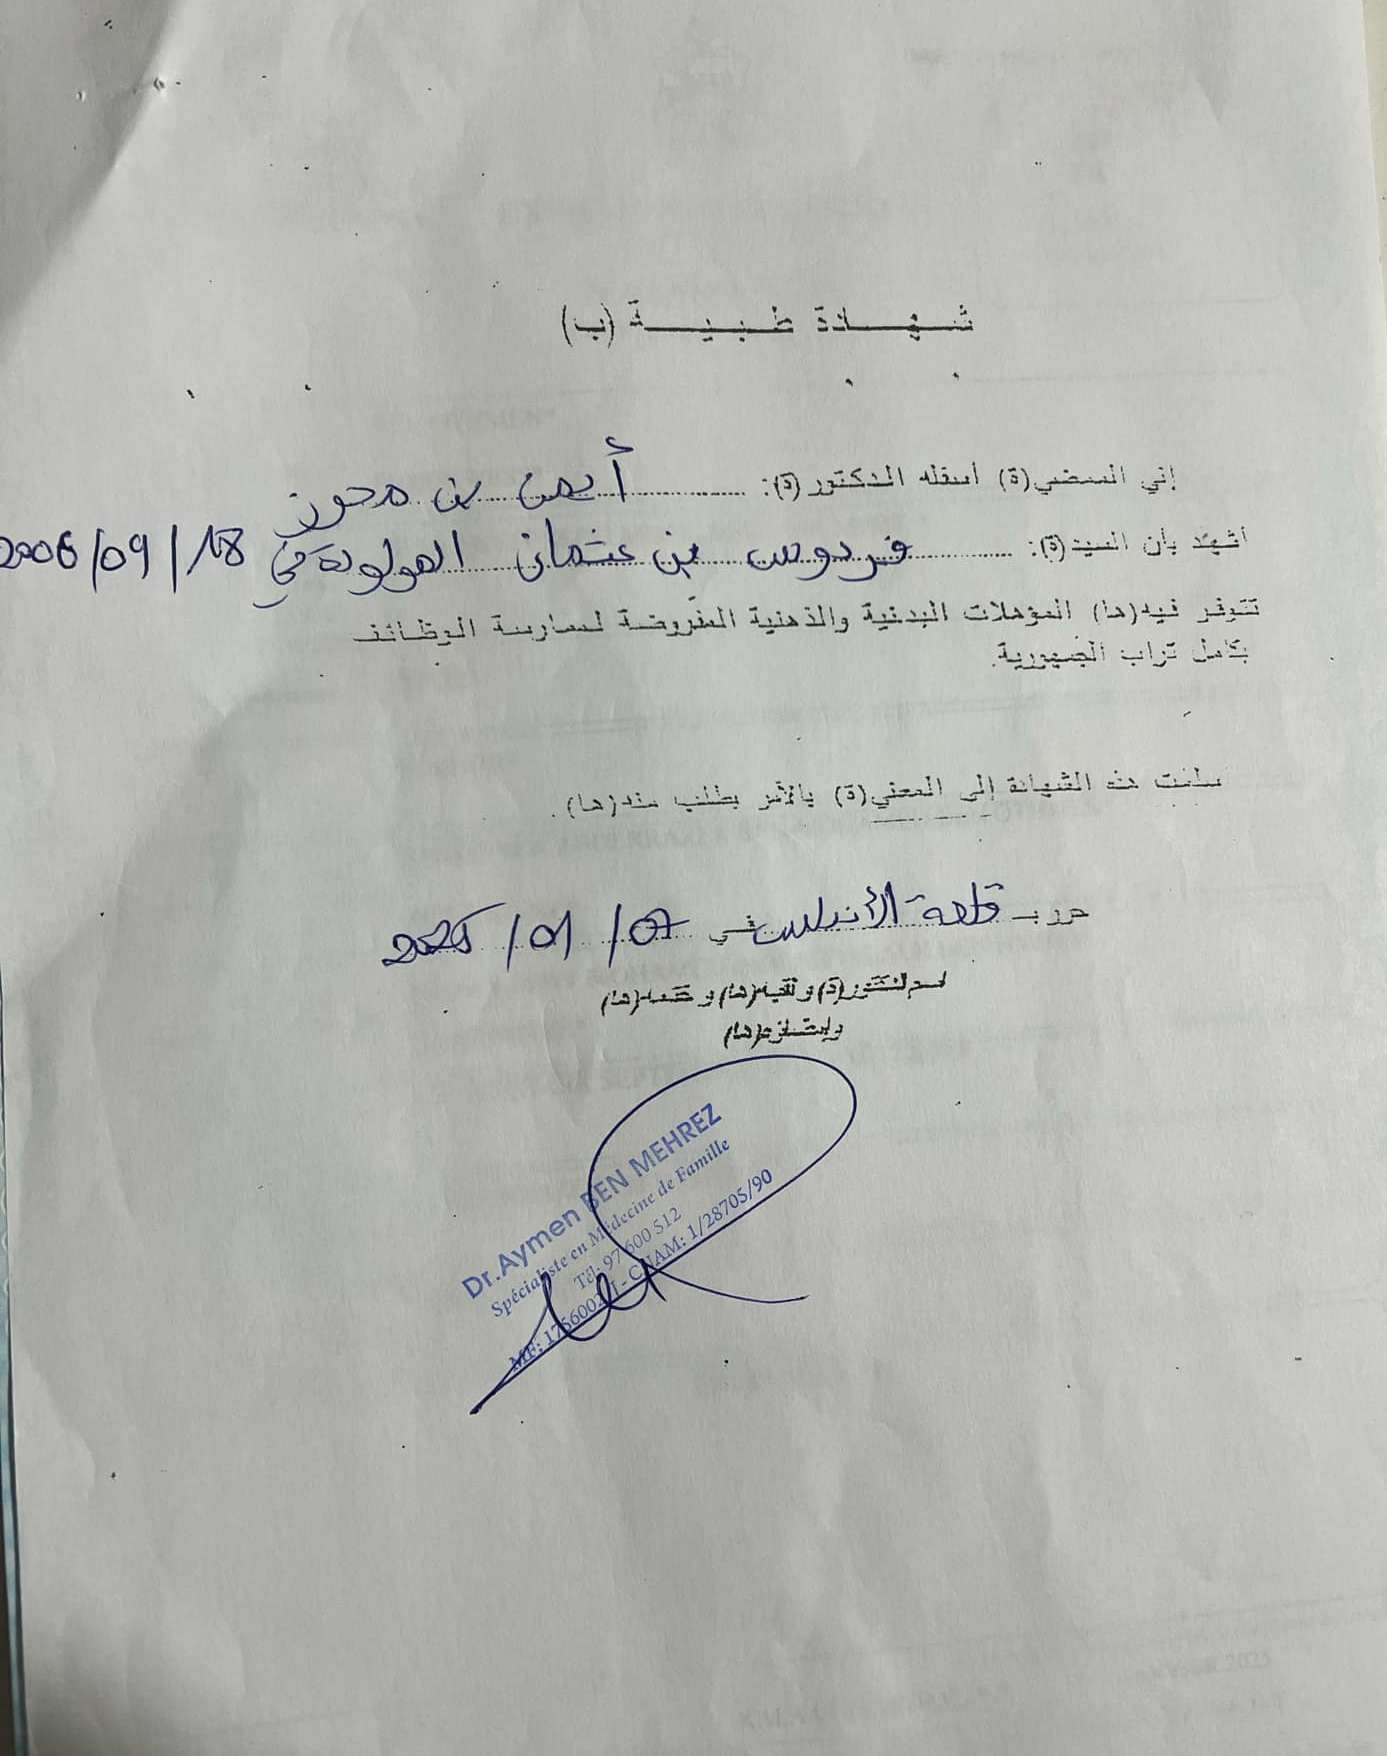 شهادة طبية (ب)
إني الممضي(ة) أسفله الدكتور(ة): أيمن بن محرز
أشهد بأن السيد(ة): فردوس بن عثمان المولودة في 18/09/2006
تتوفر فيه(ها) المؤهلات البدنية والذهنية المفروضة لممارسة الوظائف
بكامل تراب الجمهورية.
سلمت هذه الشهادة إلى المعني(ة) بالأمر بطلب منه(ها).
حرر بـ قلعة الأندلس في 07/01/2025
اسم الدكتور(ة) ولقبه(ها) وختمه(ها)
وإمضاؤه(ها)
Dr.Aymen BEN MEHREZ
Spécialiste en Médecine de Famille
Tél: 97 600 512
CNAM: 1/28705/90